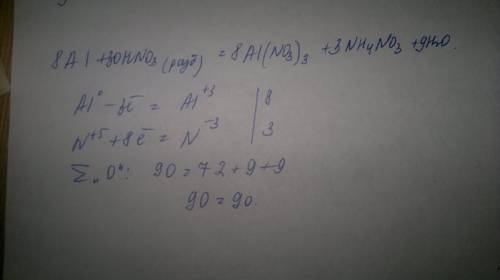 8Al + 30HNO₃ (разб) = 8Al(NO₃)₃ + 3NH₄NO₃ + 9H₂O.
Al⁰ - 3ē = Al⁺³ | 8
N⁺⁵ + 8ē = N⁻³ | 3
Σ "О": 90 = 72 + 9 + 9
90 = 90.